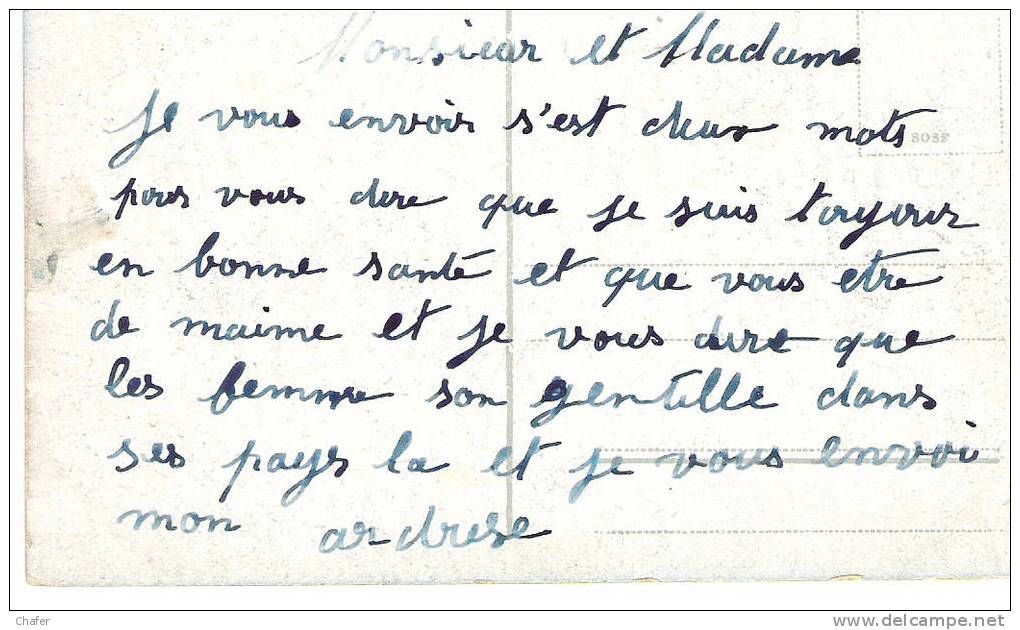 Monsieur et Madame
Je vous envoir s'est deux mots
SOSF
pour vous dire que je suis toujour
en bonne santé et que vous etre
de maime et je vous dire que
les femme son gentille dans
ses pays la et je vous envoi
mon ardrese
Chafer
www.delcampe.net